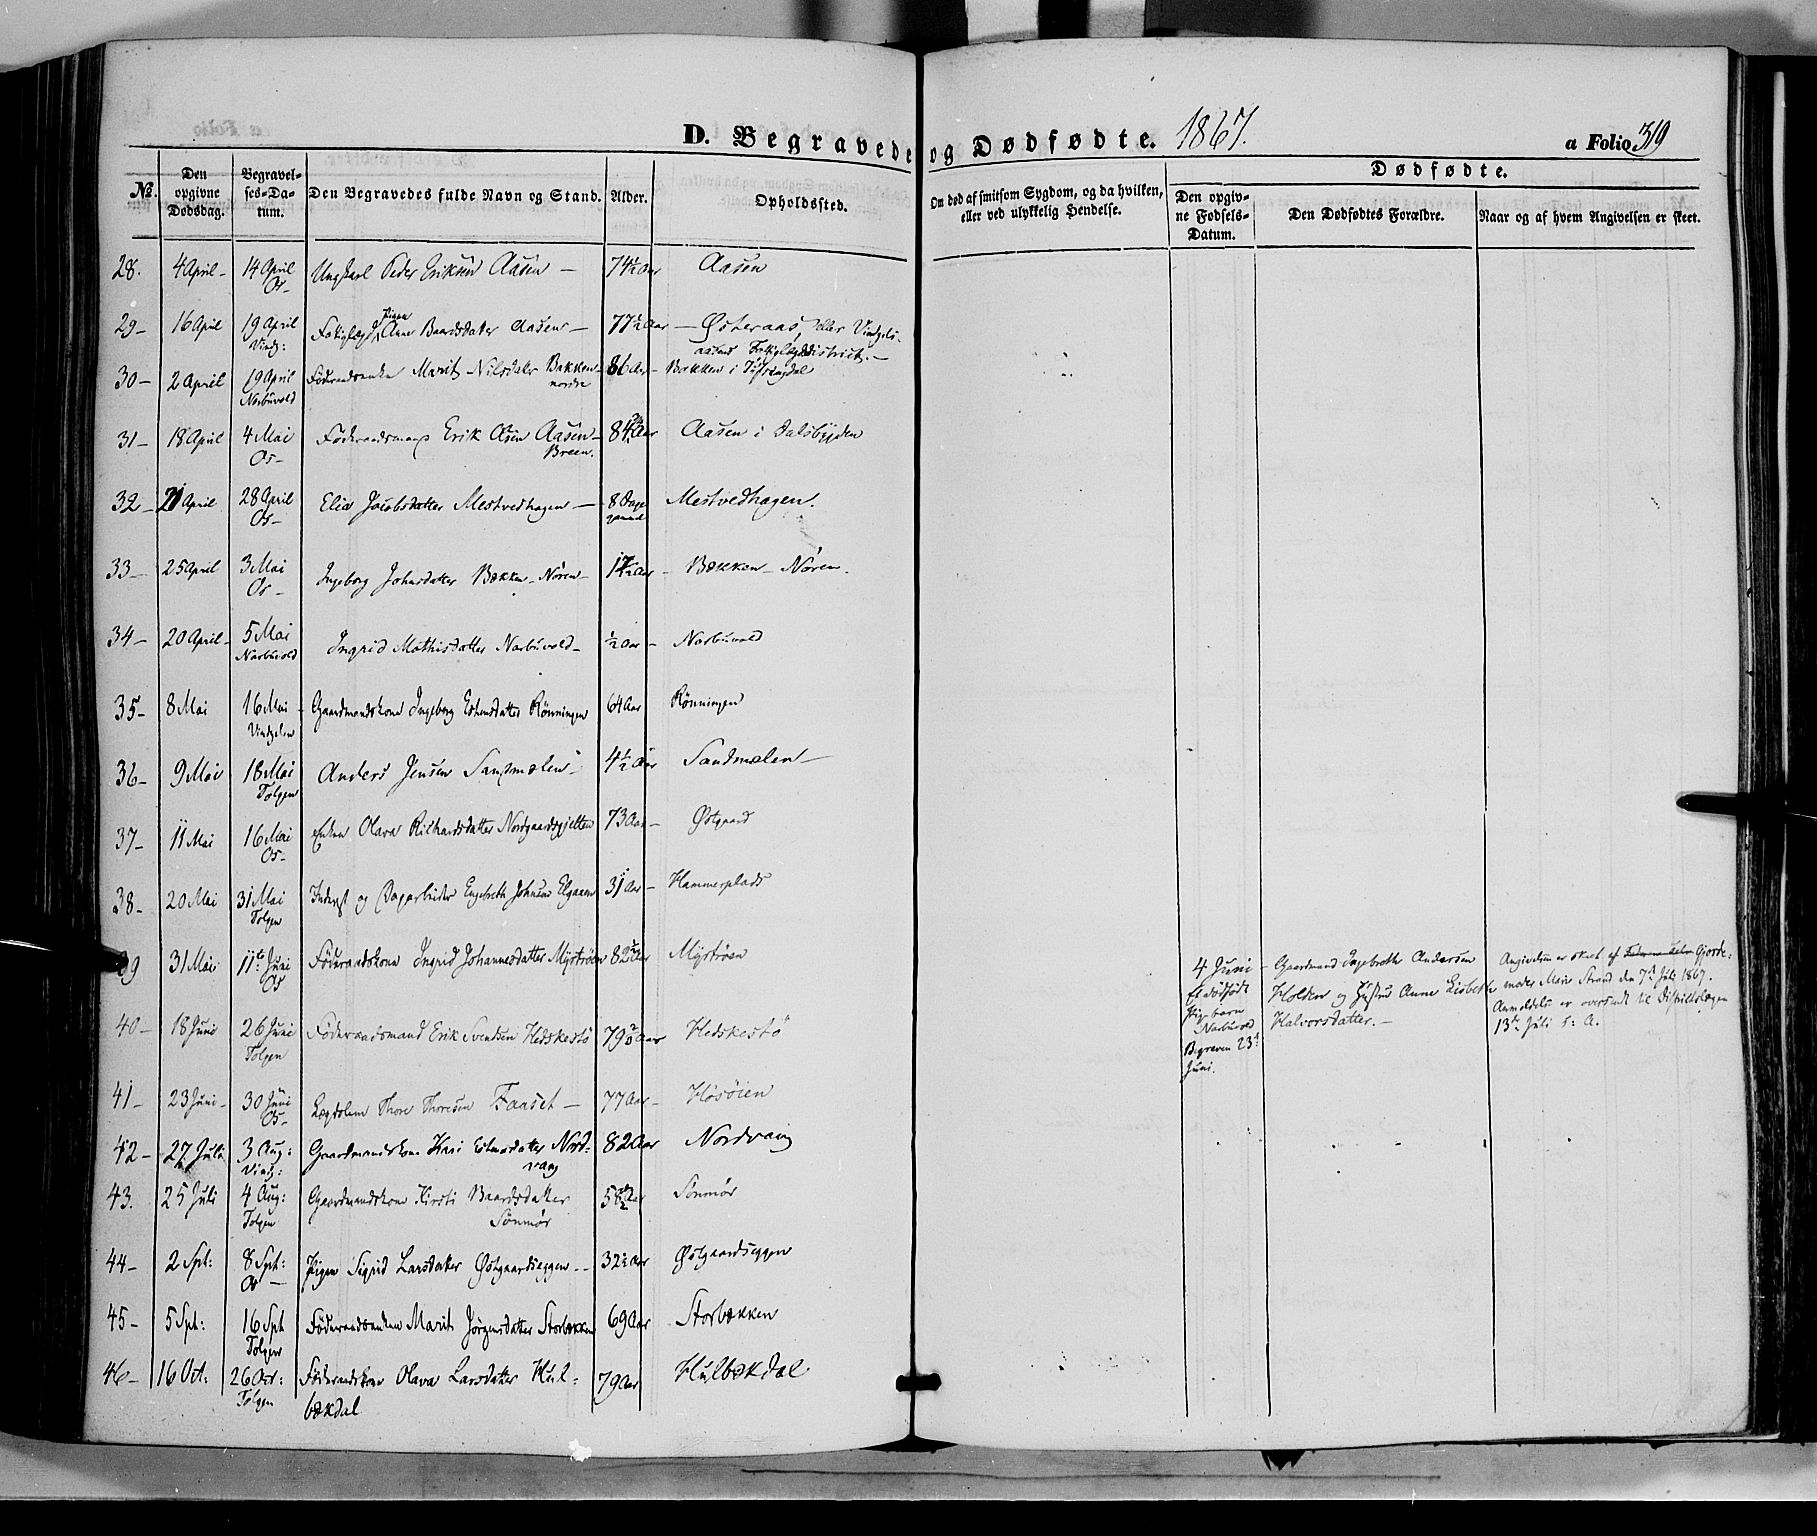 D. Begravede og Dødfødte. 1867. a Folio 319
No. Den opgivne Dødsdag. Begravelses-Datum. Den Begravedes fulde Navn og Stand. Alder. Opholdssted. Om død af smitsom Sygdom, og da hvilken, eller ved ulykkelig Hendelse. Dødfødte.
Den opgivne Fødsels-Datum. Den Dødfødtes Forældre. Naar og af hvem Angivelsen er skeet.
28. 4 April - 14 April Os - Ungkarl Peder Eriksen Aasen - 74½ Aar Aasen
29 - 16 April 19 April Vindg: Pigen Anne Baardsdatter Aasen - 77½ Aar - Østeraas, eller Vindgels-
aasens
30 - 2 April 19 April Narbuvold Føderaadsenke Marit Nilsdatter Bakken nordre 86 Aar - Bakken i
31 - 18 April 4 Mai Os - Føderaadsmand Erik Olsen Aasen - Breen. 84 Aar Aasen i Dalsbygden
32 - 21 April 28 April Os - Elia Jacobsdatter Mestvedhagen - 8 Dage gammel Mestvedhagen.
33 - 25 April 3 Mai Os - Ingeborg Johnsdatter Bækken - Nören - Aar - Bækken - Nören.
34 - 20 April - 5 Mai Narbuvold Ingrid Mathisdatter Narbuvold - ½ Aar - Narbuvold
35 - 8 Mai 16 Mai - Vindgelen Gaardmandskone Ingeborg Estensdatter Rönningen 64 Aar Rönningen
36 - 9 Mai 18 Mai Tolgen Anders Jensen Sandmælen - 4½ Aar Sandmælen -
37 - 11 Mai 16 Mai Os - Enken Olava Richardsdatter Nordgaardsgjetten 73 Aar - Østgaard
38 - 20 Mai 31 Mai Tolgen Inderst og Dagarbeider Engebreth Johnsen Elgaaen 31 Aar - Hammerplads
39 31 Mai 11te Juni Os Føderaadskone Ingrid Johannesdatter Myrtröen 82½ Aar Myrtröen
4 Juni - Et dødfødt Pigebarn Narbuvold Begraven 23de Juni.
Gaardmand Ingebreth Andersen
Holden og Hustru Anne Lisbeth
Halvorsdatter. -
Angivelsen er skeet af Gjorde-
moder Marie Strand den 7de Juli 1867.
Anmeldelse er oversendt til Distriktslægen
13de Juli s: A.
40 - 18 Juni 26 Juni Tolgen Føderaadsmand Erik Svendsen Hedskestö 79 Aar Hedskestö
41 - 23 Juni - 30 Juni Os - Lægdslem Thore Thoresen Faaset - 77 Aar - Hosöien
42 - 27 Juli 3 Aug: Vindg: Gaardmandskone Kari Estensdatter Nord-
vang 82 Aar Nordvang
43. 25 Juli 4 Aug: Tolgen Gaardmandskone Kirsti Baardsdatter
Sönmör 58½ Aar Sönmör
44 - 2 Spt: 8 Spt: Os - Pigen Sigrid Larsdatter Østgaardseggen - 32½ Aar Østgaardseggen
45 - 5 Spt: 16 Spt Tolgen Føderaadsenken Marit Jörgensdatter Storbækken 69 Aar Storbækken
46 - 16 Oct: 26 Oct: Tolgen Føderaadskone Olava Larsdatter Hul-
bækdal 79 Aar Hulbækdal